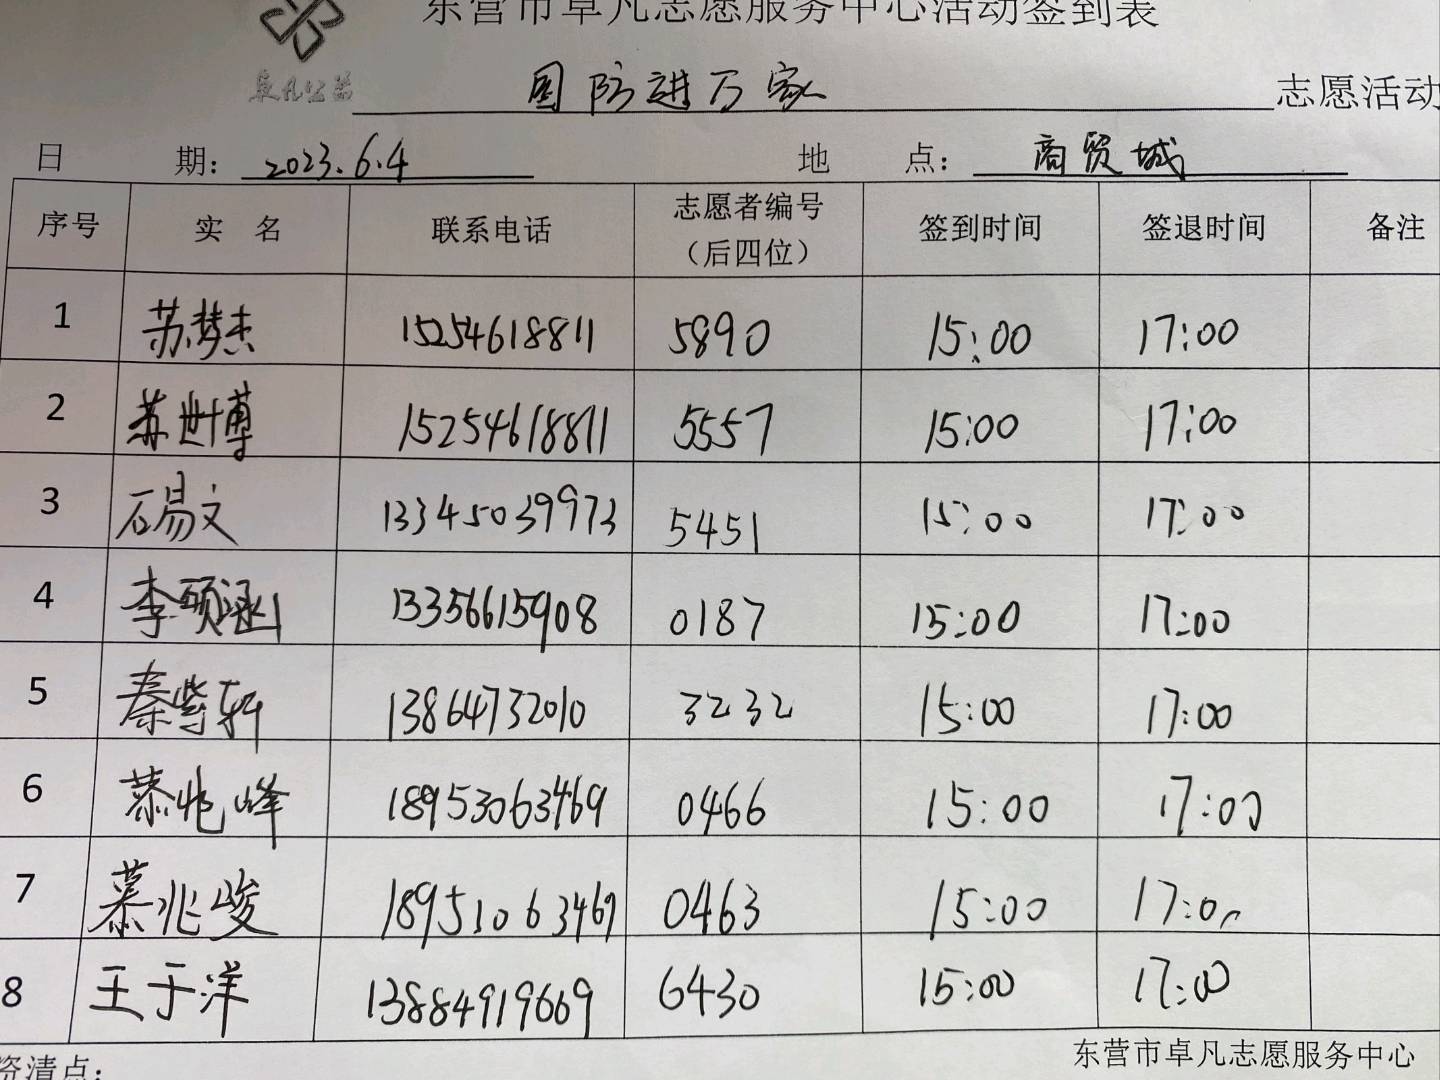 东营市卓凡志愿服务中心活动签到表
卓凡公益
国防进万家 志愿活动
日 期： 2023.6.4 地 点： 商贸城
序号 实 名 联系电话 志愿者编号（后四位） 签到时间 签退时间 备注
1 苏梦杰 15254618811 5890 15:00 17:00
2 苏世博 15254618811 5557 15:00 17:00
3 石易文 13345039973 5451 15:00 17:00
4 李硕涵 13356615908 0187 15:00 17:00
5 秦紫轩 13864732010 3232 15:00 17:00
6 慕兆峰 18953063469 0466 15:00 17:00
7 慕兆峻 18951063469 0463 15:00 17:00
8 王于洋 13884919669 6430 15:00 17:00
资清点：
东营市卓凡志愿服务中心